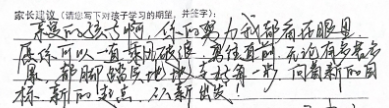 家长建议(请您写下对孩子学习的期望,并签字):
亲爱的孩子啊,你的努力我都看在眼里
愿你可以一直乘风破浪,勇往直前,无论有多
累,都脚踏实地 走好每一步,向着新的目
标,新的起点,从新出发!